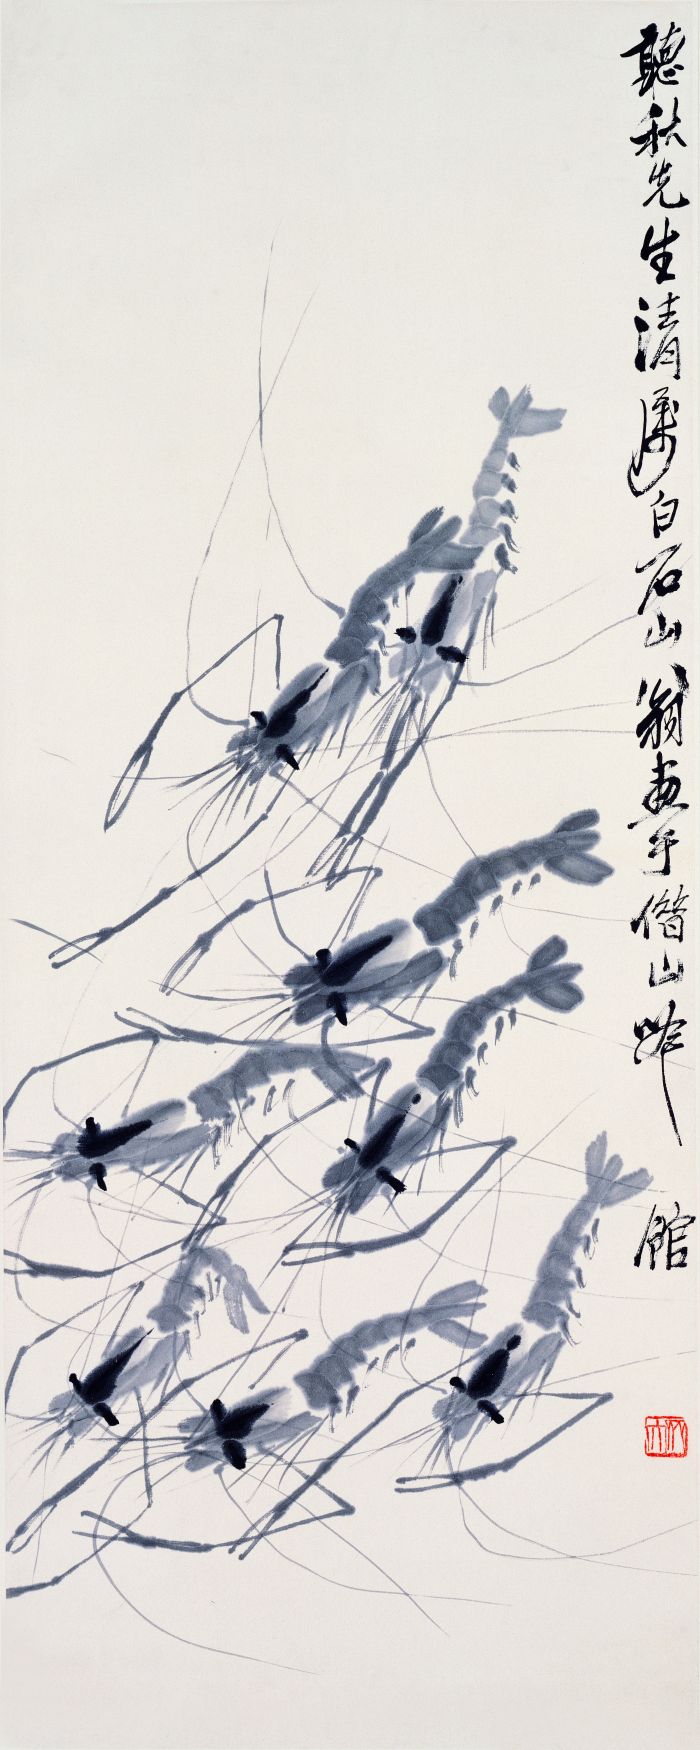 聽秋先生清属白石山翁畫于借山吟館